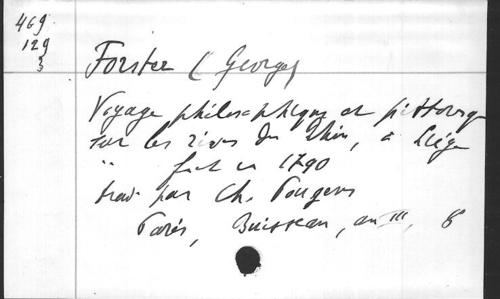 469
129
3
Forster (Georges)
Voyage philosophique et pittoresq
sur les rives du Rhin, à Liége
" fait en 1790
trad. par Ch. Pougens
Paris, Buisson, an III, 8